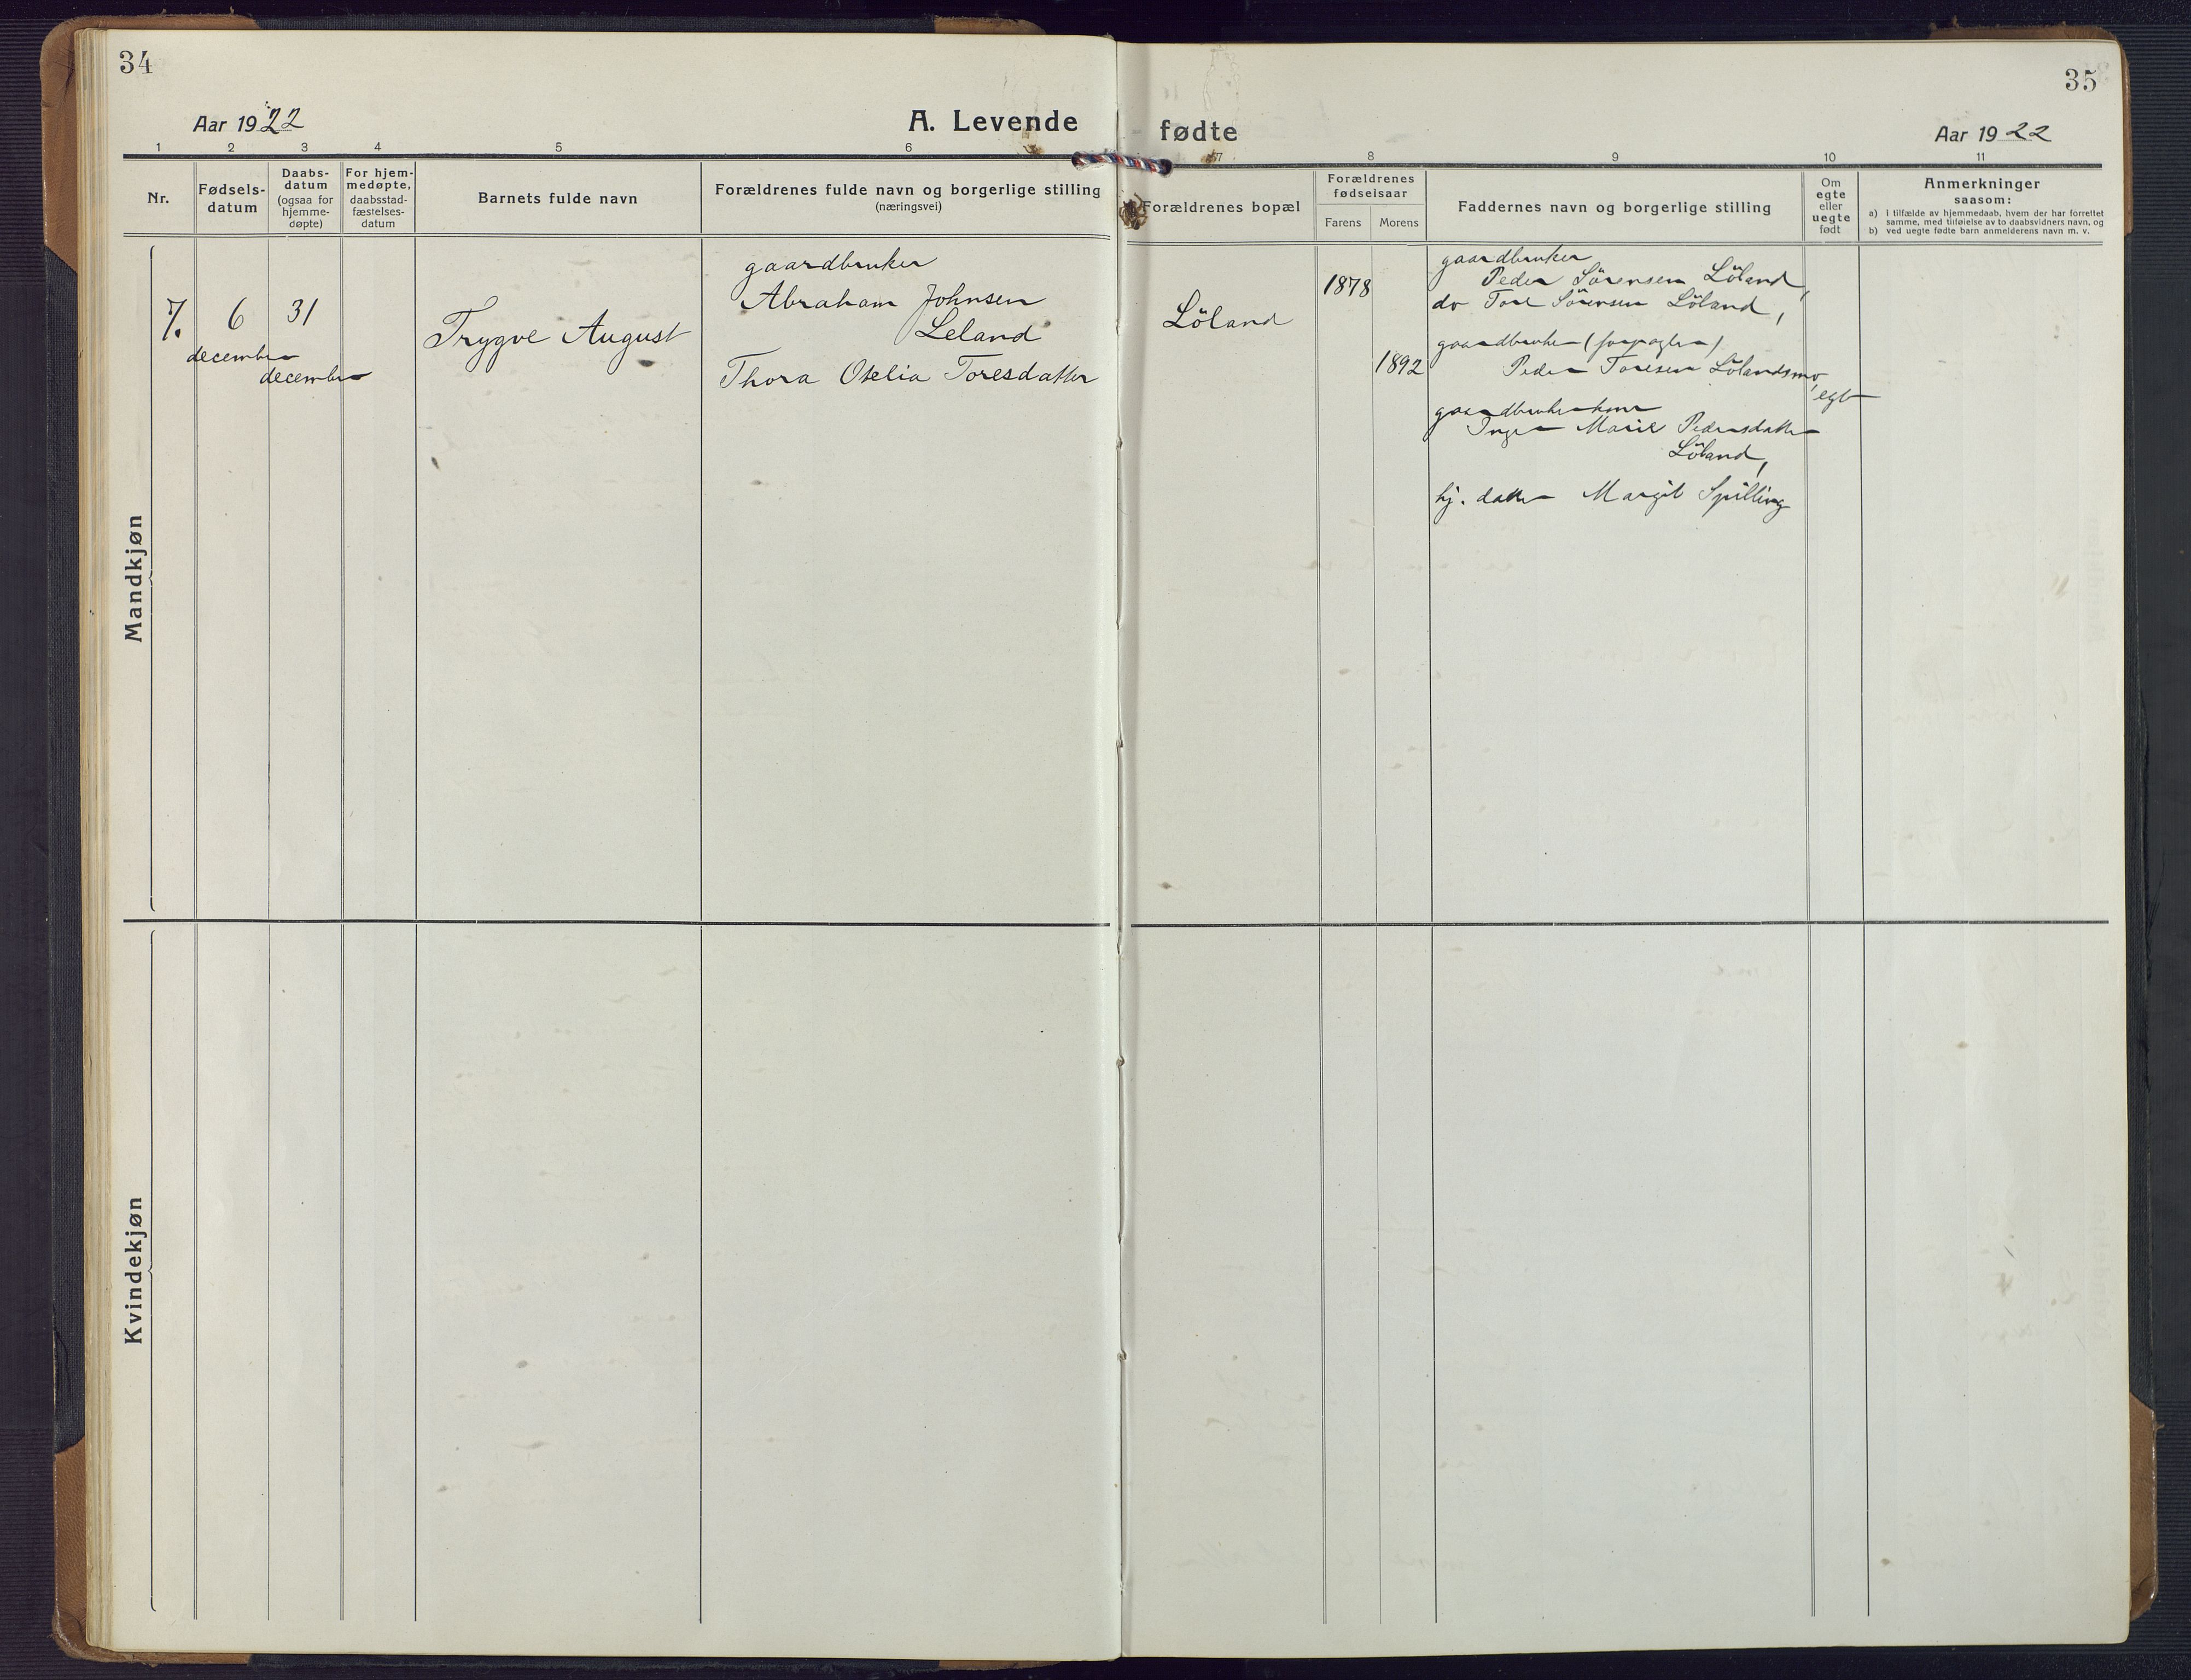 34
Aar 1922
A. Levende
1 2 3 4 5 6
Nr.
Fødsels-
datum
Daabs-
datum
(ogsaa for
hjemme-
døpte)
For hjem-
medøpte,
daabsstad-
fæstelses-
datum
Barnets fulde navn
Forældrenes fulde navn og borgerlige stilling
(næringsvei)
Mandkjøn
7.
6
december
31
december
Trygve August
gaardbruker
Abraham Johnsen
Leland
Thora Otelia Toresdatter
Kvindekjøn
35
fødte
Aar 1922
7 8 9 10 11
Forældrenes bopæl
Forældrenes
fødselsaar
Farens Morens
Faddernes navn og borgerlige stilling
Om
egte
eller
uegte
født
Anmerkninger
saasom:
a) i tilfælde av hjemmedaab, hvem der har forrettet
samme, med tilføielse av to daabsvidners navn, og
b) ved uegte fødte barn anmelderens navn m. v.
Löland
1878
1892
gaardbruker
Peder Sörensen Löland,
do Tore Sörensen Löland,
gaardbruker (forpagter)
Peder Toresen Lölandsmo,
gaardbrukerkone
Inger Marie Pedersdatter
Löland,
hj. datter Margit Spilling
egte